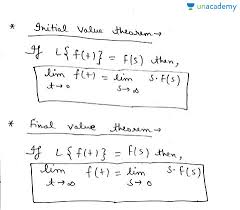 unacademy
* Initial value theorem →
If L{f(t)} = F(s) then,
lim t→0 f(t) = lim s→∞ s·F(s)
* Final value theorem →
If L{f(t)} = F(s) then,
lim t→∞ f(t) = lim s→0 s·F(s)